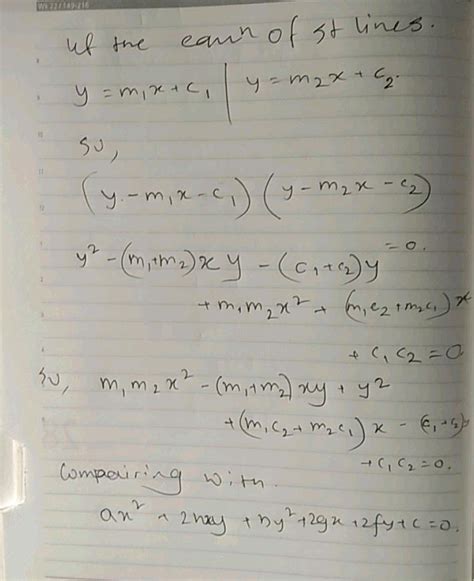 If the eqn of st lines.
y = m₁x + c₁ | y = m₂x + c₂.
So,
(y - m₁x - c₁) (y - m₂x - c₂)
= 0.
y² - (m₁+m₂)xy - (c₁+c₂)y
+ m₁m₂x² + (m₁c₂+m₂c₁)x
+ c₁c₂ = 0
So, m₁m₂x² - (m₁+m₂)xy + y²
+ (m₁c₂+m₂c₁)x - (c₁+c₂)y
+ c₁c₂ = 0.
Compairing with.
ax² + 2hxy + by² + 2gx + 2fy + c = 0.